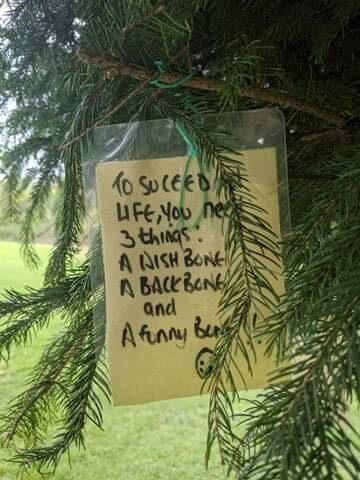 TO SUCEED
LIFE, YOU need
3 things.
A WISH BONE
A BACKBONE
and
A funny Bone!